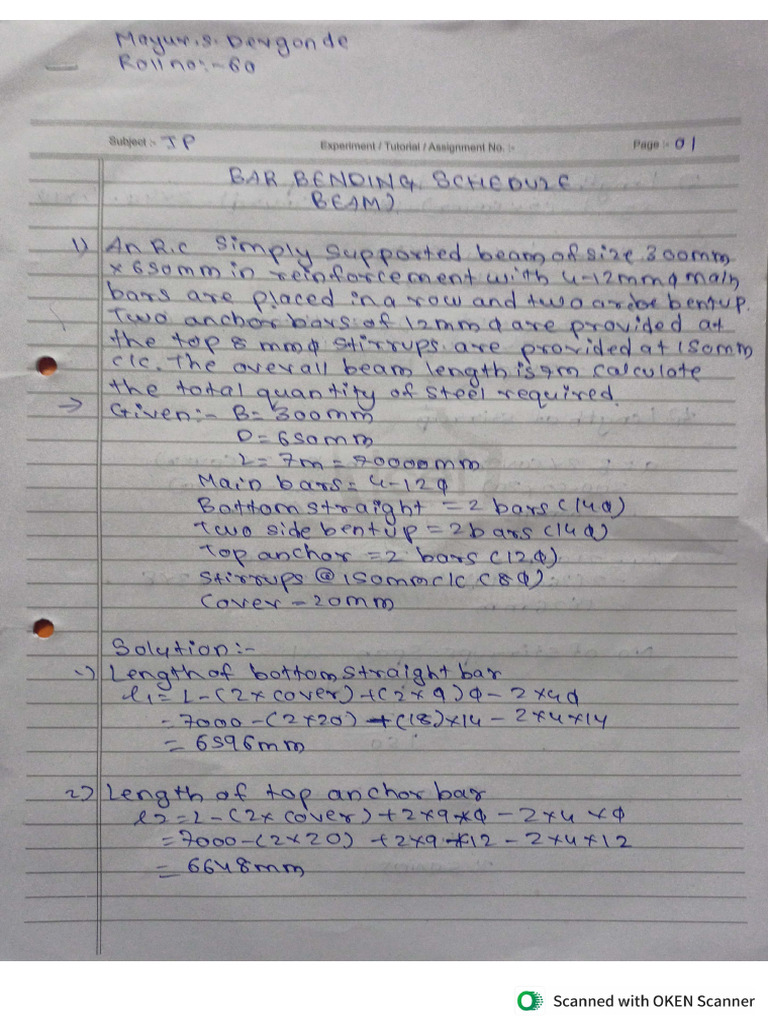 Mayur.S. Dergonde
Roll no:-60
Subject :- JP Experiment / Tutorial / Assignment No. :- Page :- 01
BAR BENDING SCHEDULE
BEAM)
1) An R.C simply supported beam of size 300mm
x 650mm in reinforcement with 4-12mmφ main
bars are placed in a row and two are be bentup.
Two anchor bars of 12mmφ are provided at
the top 8 mmφ stirrups are provided at 150mm
c/c. The overall beam length is 7m calculate
the total quantity of steel required.
→ Given:- B= 300mm
D=650mm
L=7m=70000mm
Main bars=4-12φ
Bottom straight = 2 bars (14φ)
Two side bentup = 2 bars (14φ)
Top anchor = 2 bars (12φ)
Stirrups @ 150mm c/c (8φ)
Cover - 20mm
Solution:-
1) Length of bottom straight bar
l1= L-(2x cover)+(2x9)φ-2x4φ
=7000-(2x20)+(18)x14-2x4x14
= 6596mm
2) Length of top anchor bar
l2=L-(2x cover)+2x9xφ-2x4xφ
=7000-(2x20)+2x9x12-2x4x12
= 6648mm
Scanned with OKEN Scanner